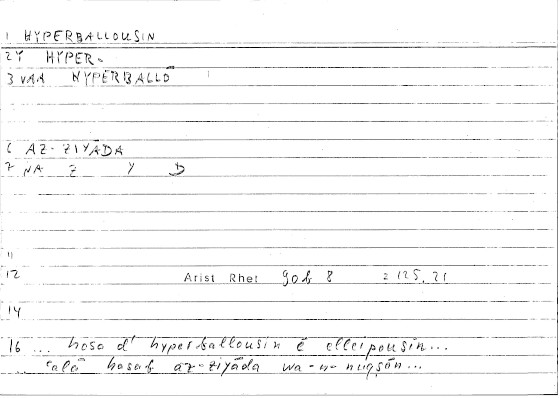 1 HYPERBALLOUSIN
2 Y HYPER-
3 VAA HYPERBALLŌ
6 AZ-ZIYĀDA
7 NA Z Y D
11
12 Arist Rhet 90b 8 = 125,21
14
16 ... hosa d' hyperballousin ē elleipousin...
ʿalā hasab az-ziyāda wa-n-nuqṣān...